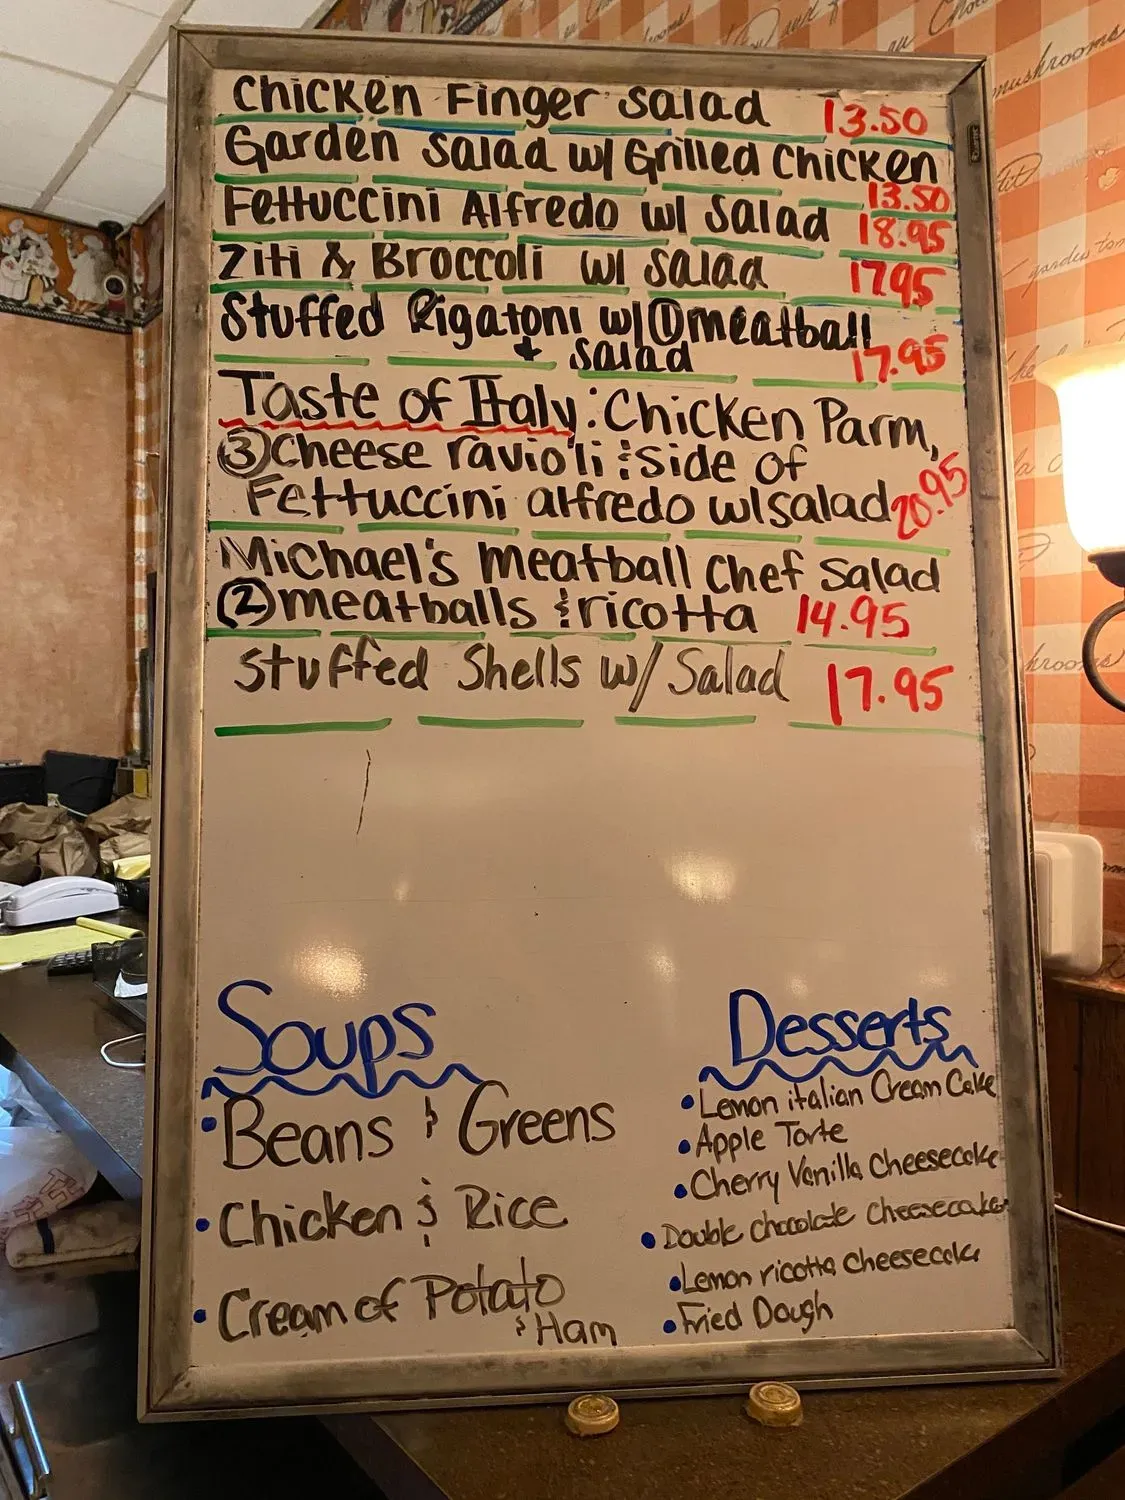 Chicken Finger Salad 13.50
Garden Salad w/ Grilled Chicken
13.50
Fettuccini Alfredo w/ Salad 18.95
Ziti & Broccoli w/ Salad 17.95
Stuffed Rigatoni w/ ① meatball
+ Salad 17.95
Taste of Italy: Chicken Parm,
③ Cheese ravioli & side of
Fettuccini alfredo w/salad 20.95
Michael's Meatball Chef Salad
② meatballs & ricotta 14.95
Stuffed Shells w/ Salad 17.95
Soups
• Beans & Greens
• Chicken & Rice
• Cream of Potato
& Ham
Desserts
• Lemon italian Cream Cake
• Apple Torte
• Cherry Vanilla Cheesecake
• Double chocolate cheesecake
• Lemon ricotta cheesecake
• Fried Dough
mushrooms
garden tom